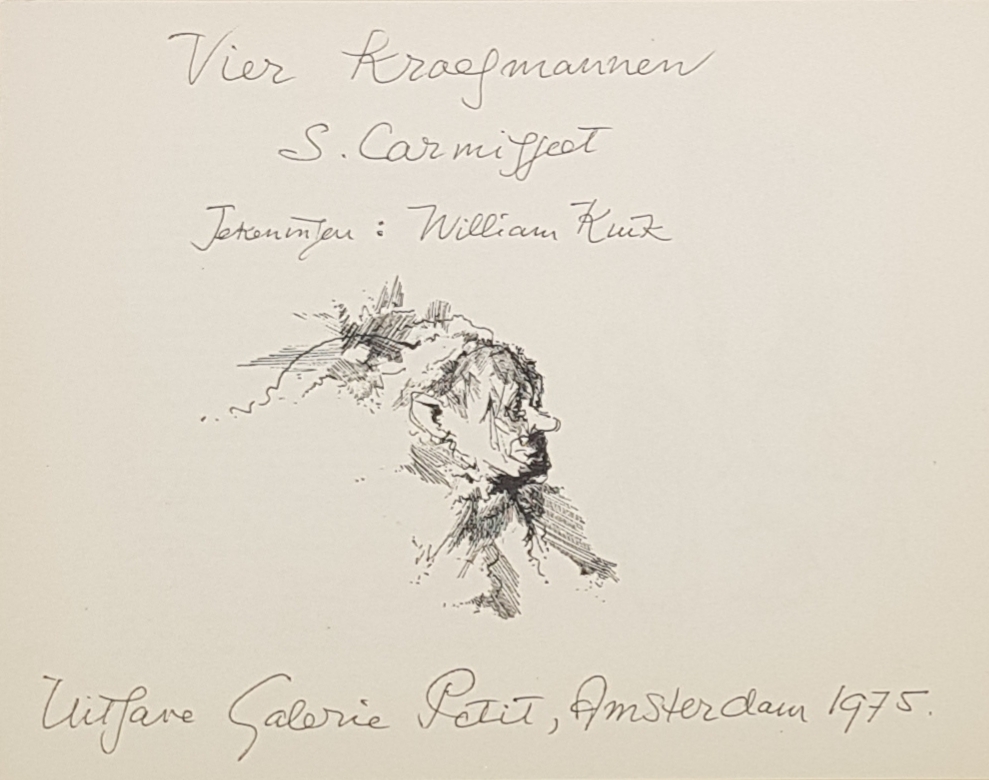 Vier Kroegmannen
S. Carmiggelt
Tekeningen : William Kuik
Uitgave Galerie Petit, Amsterdam 1975.